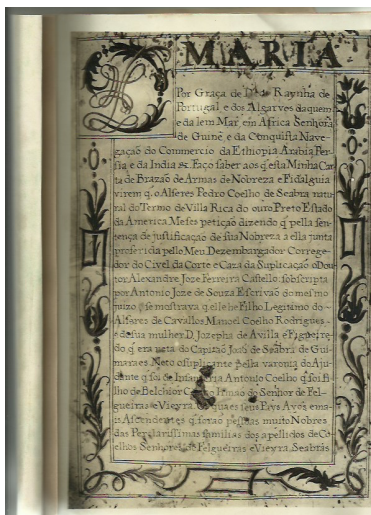 MARIA
Por Graça de D.s Raynha de
Portugal e dos Algarves daquem
e da lem Mar, em Africa Senhora
de Guiné e da Conquista Nave
gação do Commercio da Ethiopia Arabia Per
sia e da India &c. Faço saber aos q̃ esta Minha Car
ta de Brazão de Armas de Nobreza e Fidalguia
virem q̃ o Alferes Pedro Coelho de Seabra natu
ral do Termo de Villa Rica do ouro Preto Estado
da America Mefes petição dizendo q̃ pella sen
tença de justificação de sua Nobreza a ella junta
proferida pello Meu Dezembargador Correge
dor do Civel da Corte e Caza da Suplicação o Dou
tor Alexandre Joze Ferreira Castello: sobscripta
por Antonio Joze de Souza Escrivão do mesmo
juizo se mostrava q̃ elle he Filho Legitimo do
Alferes de Cavallos Manoel Coelho Rodrigues
e de sua mulher D. Jozepha de Avilla e Figueire
do q̃ era neta do Capitão João de Seabra de Gui
maraes Neto o suplicante Pella varonia do Aju
dante q̃ foi de Infantaria Antonio Coelho q̃ foi Fi
lho de Belchior Irmao do Senhor de Fel
gueiras e Vieyra. Os quaes seus Pays Avós e ma
is Ascendentes q̃ forão pessoas muito Nobres
das Perclarissimas familias dos apellidos de Co
elhos Senhores de Felgueiras e Vieyra. Seabras